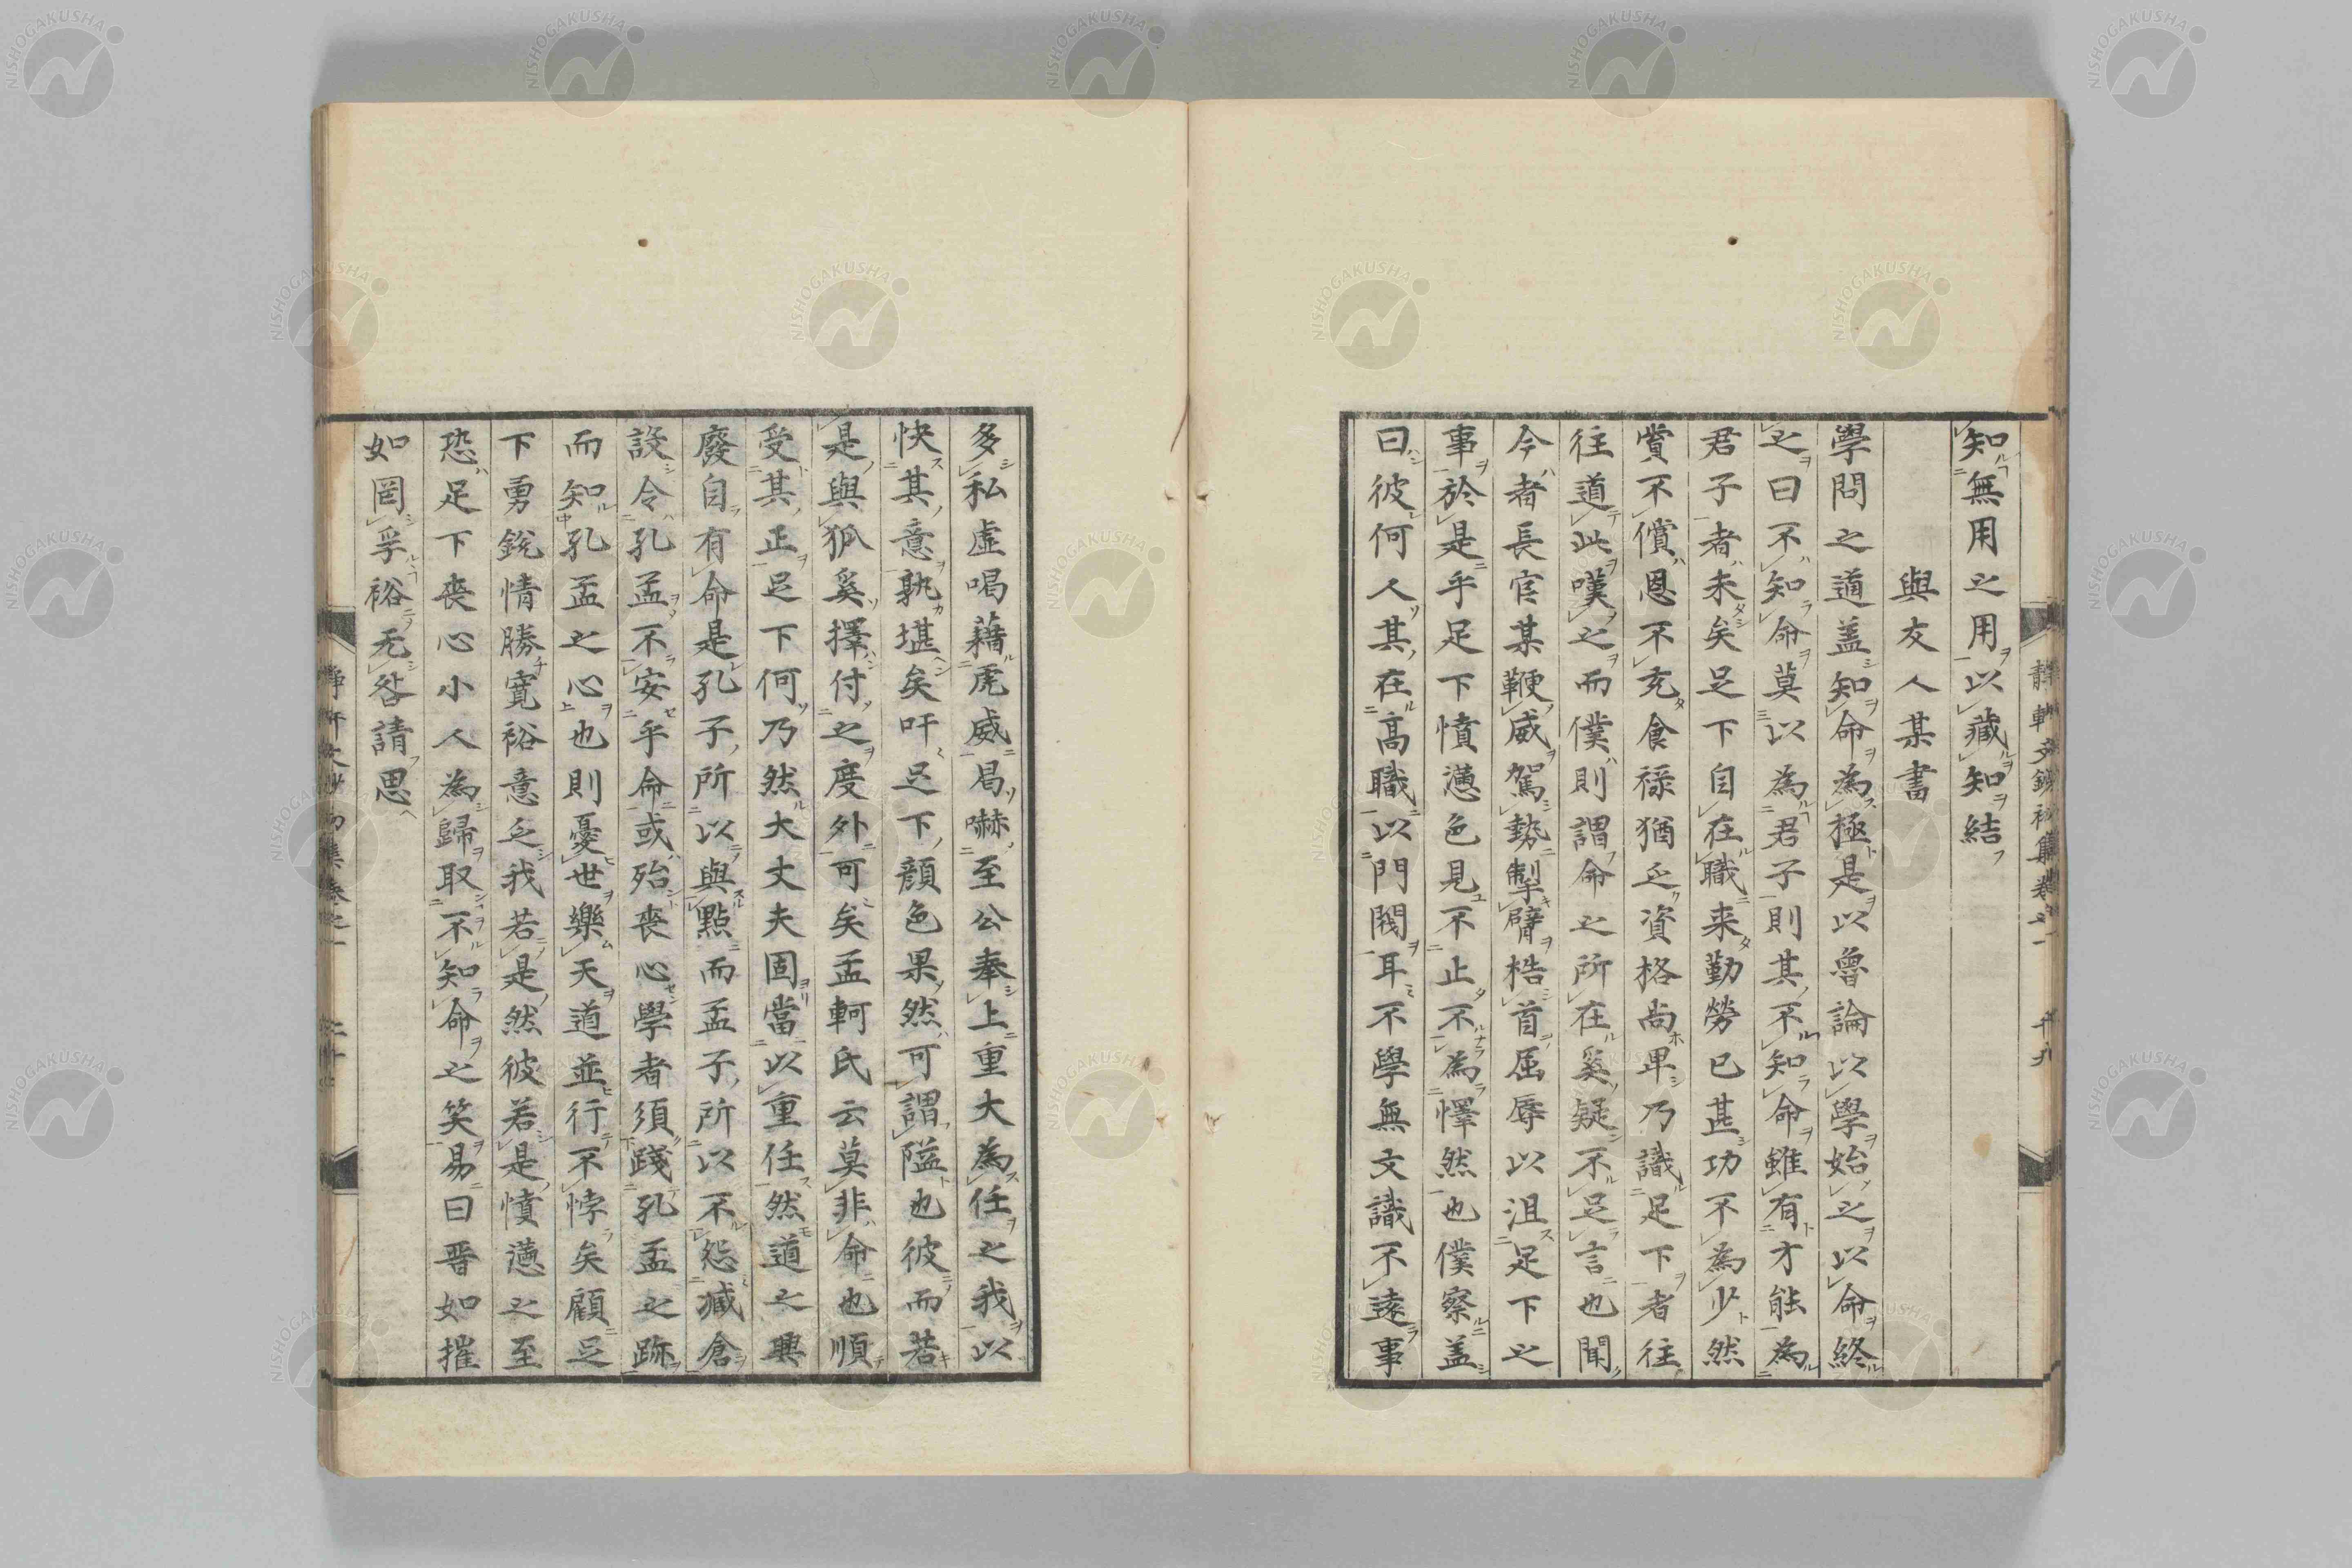 知無用之用以藏知結
與友人某書
學問之道盖知命為極是以魯論以學始之以命終
之曰不知命莫以為君子則其不知命雖有才能為
君子者未矣足下自在職来勤勞已甚功不為少然
賞不償恩不充食祿猶乏資格尚卑乃識足下者往
往道此嘆之而僕則謂命之所在奚疑不足言也聞
今者長官某鞭威駕勢掣臂梏首屈辱以沮足下之
事於是乎足下憤懣色見不止不為懌然也僕察盖
曰彼何人其在高職以門閥耳不學無文識不遠事
多私虛喝藉虎威曷嚇至公奉上重大為任之我以
快其意孰堪矣吁足下顔色果然可謂隘也彼而若
是與狐奚擇付之度外可矣孟軻氏云莫非命也順
受其正足下何乃然大丈夫固當以重任然道之興
廢自有命是孔子所以與點而孟子所以不怨臧倉
設令孔孟不安乎命或殆喪心學者須踐孔孟之跡
而知孔孟之心也則憂世樂天道並行不悖矣顧足
下勇銳情勝寛裕意乏我若是然彼若是憤懣之至
恐足下喪心小人為歸取不知命之笑易曰晋如摧
如罔孚裕无咎請思
NISHOGAKUSHA